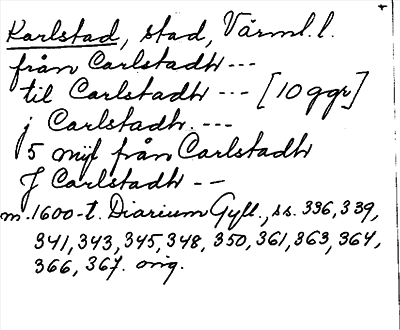 Karlstad, stad, Värml. l.
från Carlstadh ---
til Carlstadh --- [10 ggr]
j Carlstadh. ---
5 mijl från Carlstadh
J Carlstadh --
m. 1600-t. Diarium Gyll., ss. 336, 339,
341, 343, 345, 348, 350, 361, 363, 364,
366, 367. orig.